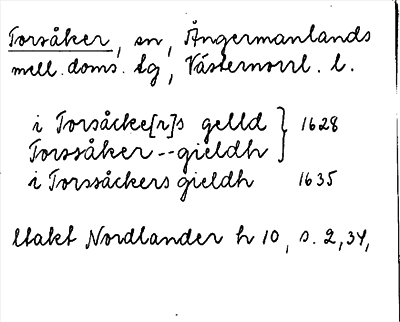 Torsåker, sn, Ångermanlands
mell. doms. tg, Västernorrl. l.
i Torsåcke[r]s gelld } 1628
Torssåker--gieldh
i Torssåckers gieldh 1635
ltakt Nordlander h 10, s. 2, 34,